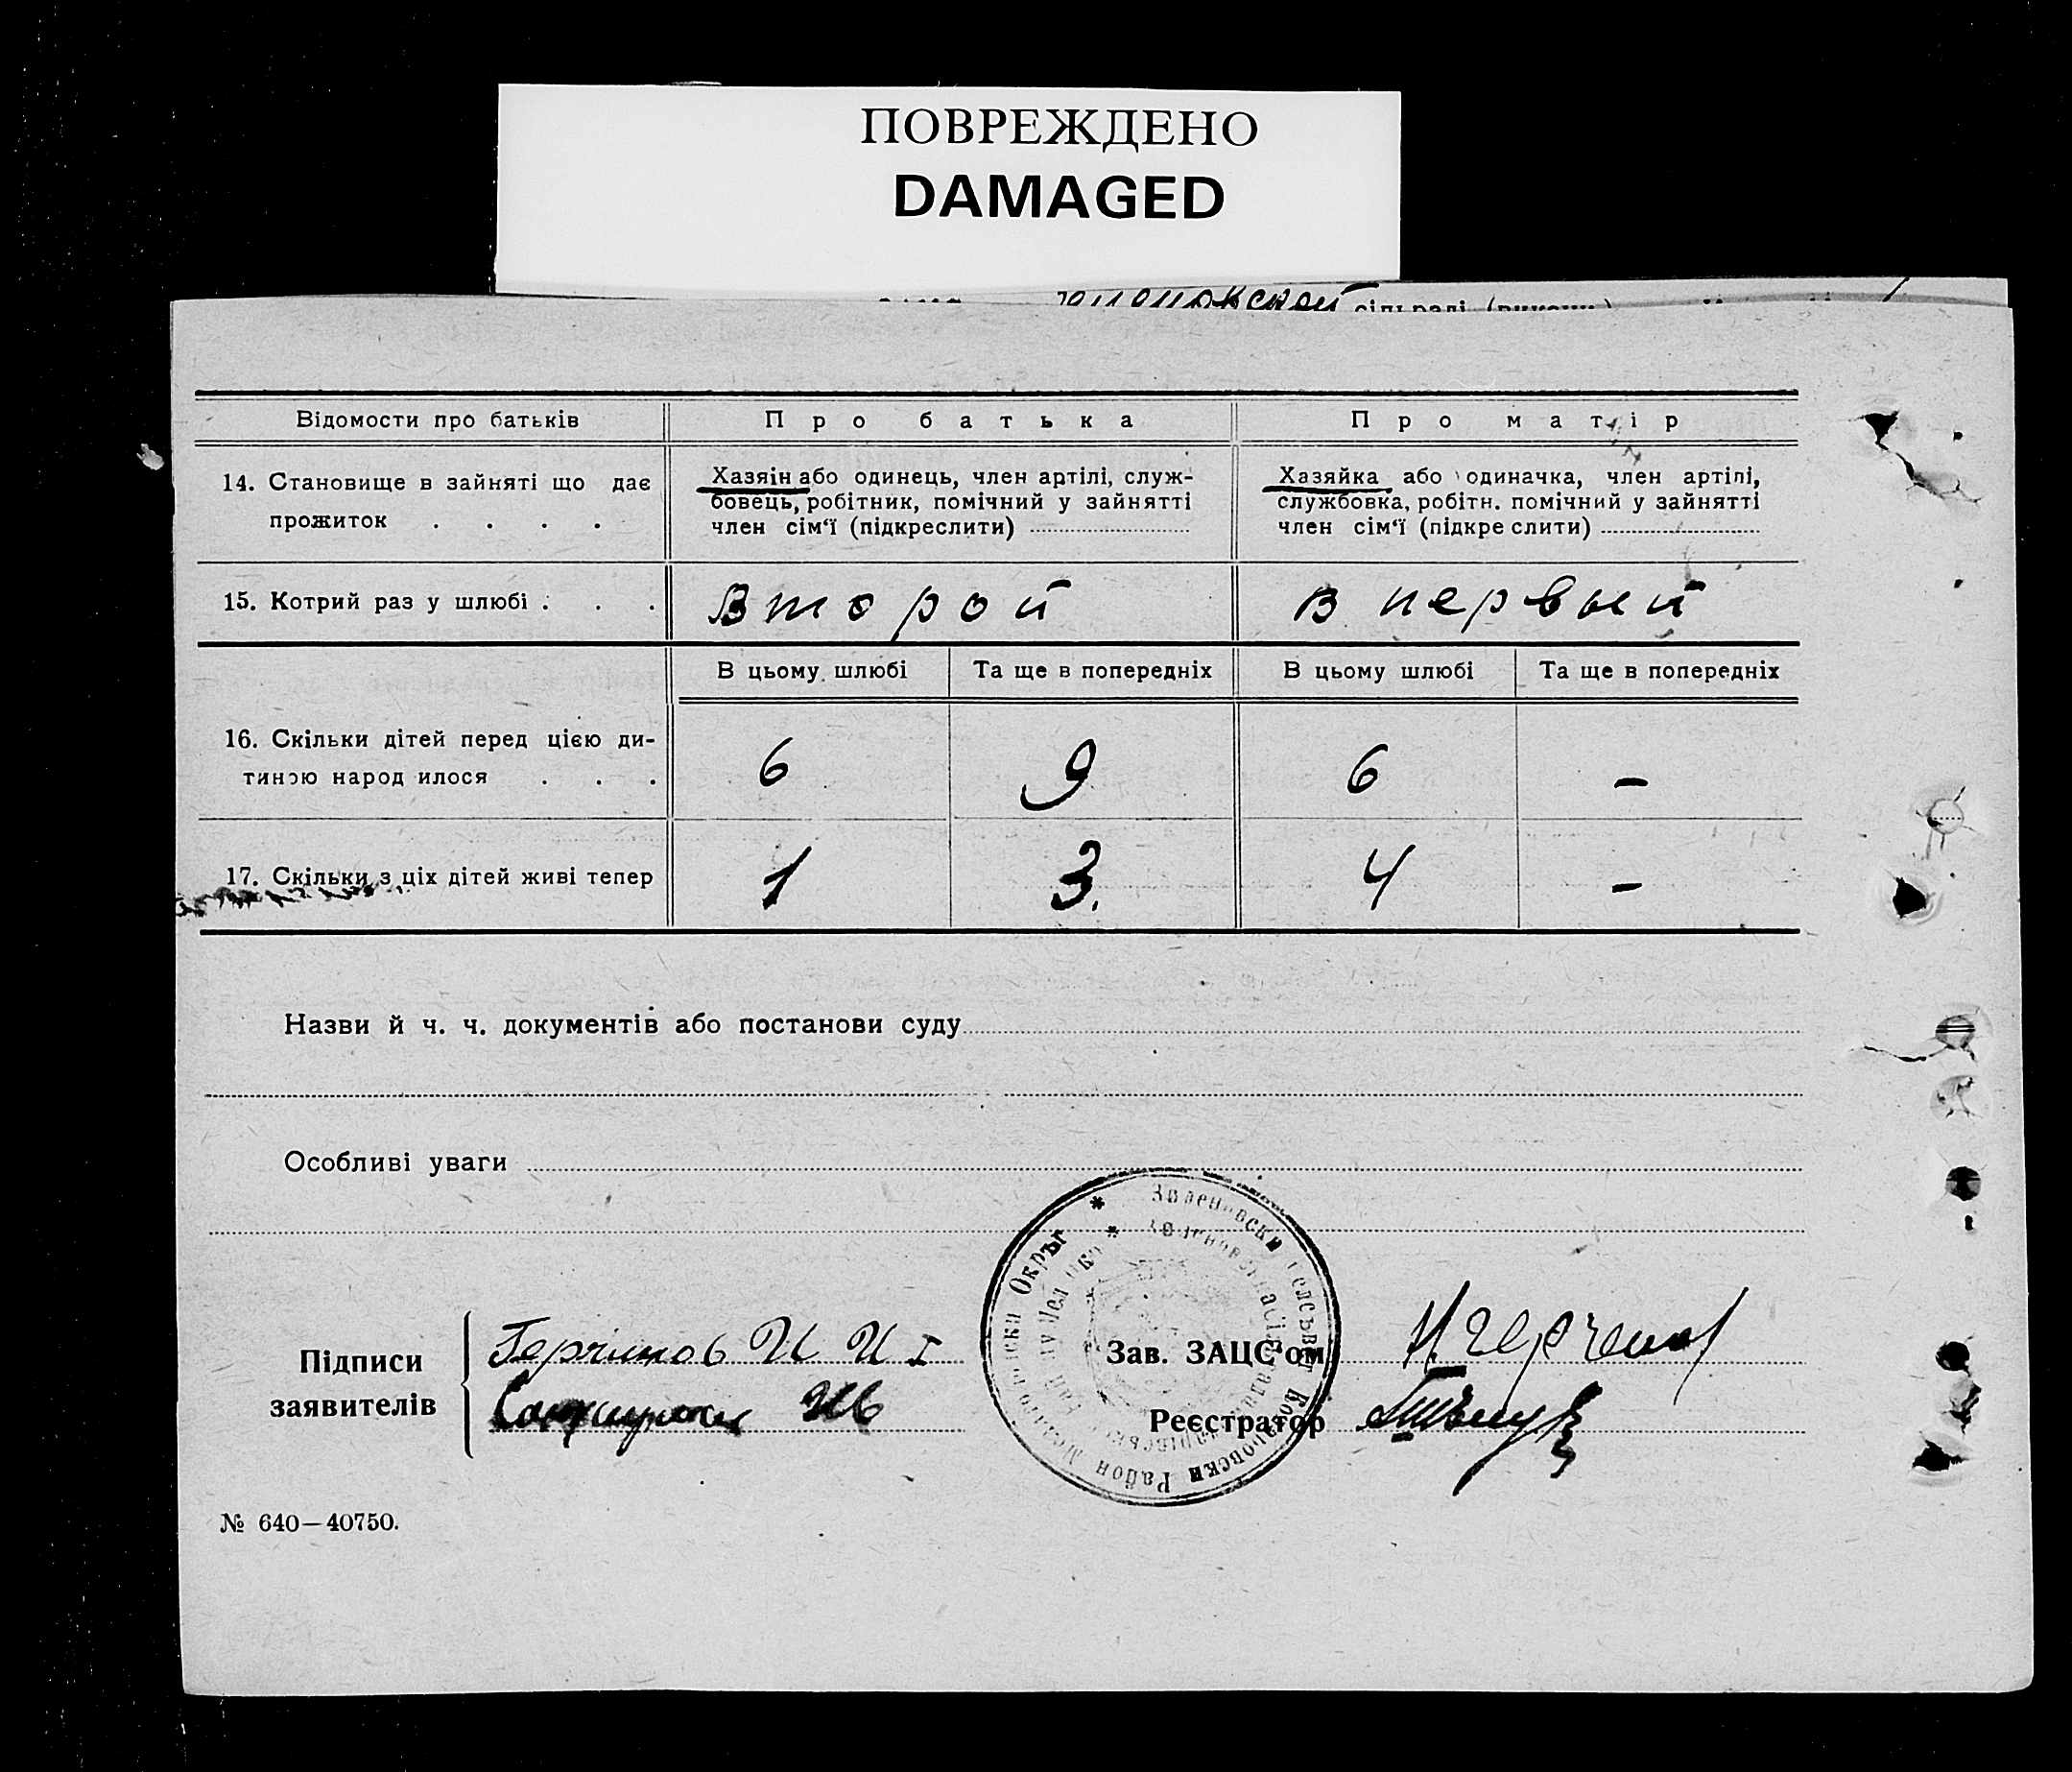 ПОВРЕЖДЕНО
DAMAGED
сільраді
Відомости про батьків
Про батька
Про матір
14. Становище в зайняті що дає
прожиток . . . .
Хазяїн або одинець, член артілі, служ-
бовець, робітник, помічний у зайнятті
член сім'ї (підкреслити)
Хазяйка або одиначка, член артілі,
службовка, робітн. помічний у зайнятті
член сім'ї (підкре слити)
15. Котрий раз у шлюбі . . .
Второй
В первый
В цьому шлюбі
Та ще в попередніх
В цьому шлюбі
Та ще в попередніх
16. Скільки дітей перед цією ди-
тиною народ илося . . .
6
9
6
–
17. Скільки з ціх дітей живі тепер
1
3.
4
–
Назви й ч. ч. документів або постанови суду
Особливі уваги
Підписи
заявителів
Зав. ЗАЦС'ом
Реєстратор
Окръг
Район
№ 640—40750.